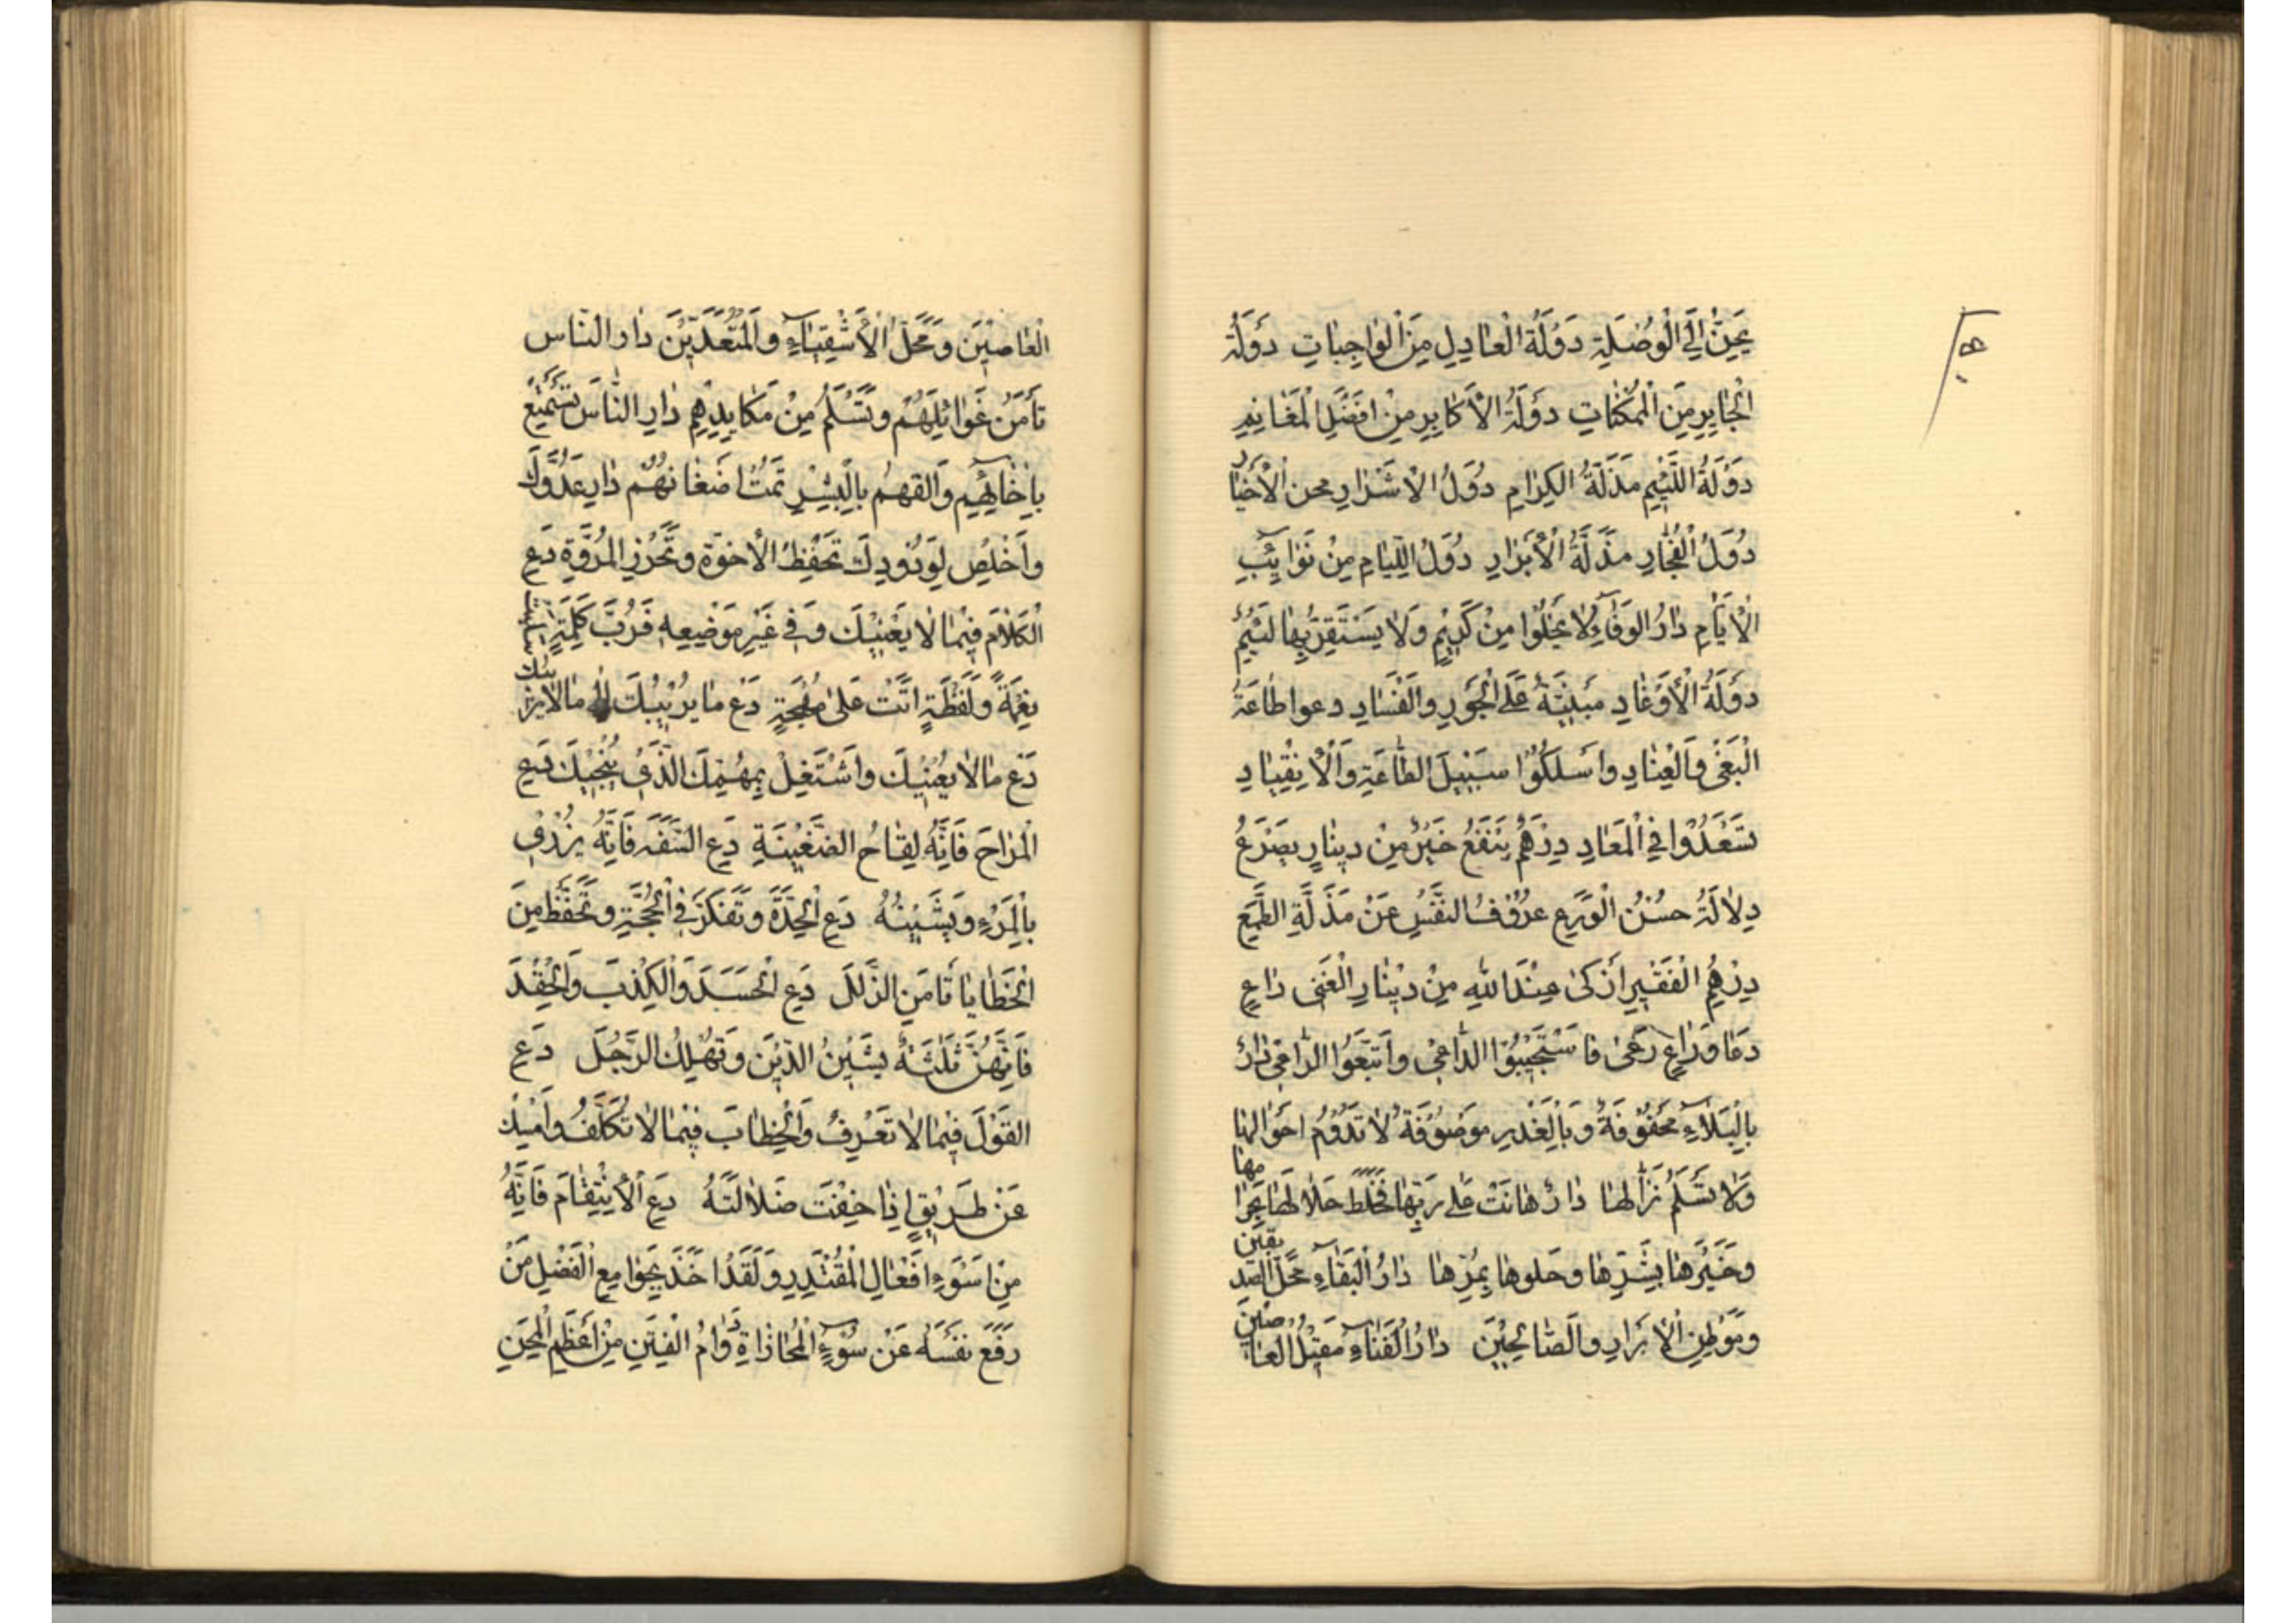 يَحِنُّ اِلَى الْوُصْلَةِ دَوْلَةُ الْعَادِلِ مِنَ الْوَاجِبَاتِ دَوْلَةُ
الْجَايِرِ مِنَ الْمُمْكِنَاتِ دَوْلَةُ الْاَكَابِرِ مِنْ اَفْضَلِ الْمَغَانِمِ
دَوْلَةُ اللَّئِيمِ مَذَلَّةُ الْكِرَامِ دُوَلُ الْاَشْرَارِ مِحَنُ الْاَخْيَارِ
دُوَلُ الْفُجَّارِ مَذَلَّةُ الْاَبْرَارِ دُوَلُ اللِّئَامِ مِنْ نَوَائِبِ
الْاَيَّامِ دَارُ الْوَفَاءِ لَا يَخْلُوا مِنْ كَرِيمٍ وَلَا يَسْتَقِرُّ بِهَا لَئِيمٌ
دَوْلَةُ الْاَوْغَادِ مَبْنِيَّةٌ عَلَى الْجَوْرِ وَالْفَسَادِ دعوا طَاعَةَ
الْبَغْيِ وَالْعِنَادِ وَاسْلُكُوا سَبِيلَ الطَّاعَةِ وَالْاِنْقِيَادِ
تَسْعَدُوا فِي الْمَعَادِ دِرْهَمٌ يَنْفَعُ خَيْرٌ مِنْ دِينَارٍ يَصْرَعُ
دِلَالَةُ حُسْنِ الْوَرَعِ عُزُوفُ النَّفْسِ عَنْ مَذَلَّةِ الطَّمَعِ
دِرْهَمُ الْفَقِيرِ اَزْكَى عِنْدَ اللهِ مِنْ دِينَارِ الْغَنِي دَاعٍ
دَعَا وَرَاعٍ رَعَى فَاسْتَجِيبُوا الدَّاعِي وَاتَّبِعُوا الرَّاعِي دَارٌ
بِالْبَلَاءِ مَحْفُوفَةٌ وَبِالْغَدْرِ مَوْصُوفَةٌ لَا تَدُومُ اَحْوَالُهَا
وَلَا تَسْلَمُ نُزَّالُهَا دَارٌ هَانَتْ عَلَى رَبِّهَا فَخَلَطَ حَلَالَهَا بِحَرَامِهَا
وَخَيْرَهَا بِشَرِّهَا وَحُلْوَهَا بِمُرِّهَا دَارُ الْبَقَاءِ مَحَلُّ الصِّدِّيقِينَ
وَمَوْطِنُ الْاَبْرَارِ وَالصَّالِحِينَ دَارُ الْفَنَاءِ مَقِيلُ الْعَاصِينَ
الْعَاصِينَ وَمَحَلُّ الْاَشْقِيَاءِ وَالْمُتَعَدِّينَ دَارِ النَّاسَ
تَأْمَنْ غَوَائِلَهُمْ وَتَسْلَمْ مِنْ مَكَايِدِهِمْ دَارِ النَّاسَ تَسْتَمْتِعْ
بِاِخَائِهِمْ وَالْقَهُمْ بِالْبِشْرِ تُمِتْ اَضْغَانَهُمْ دَارِ عَدُوَّكَ
وَاَخْلِصْ لِوَدُودِكَ تَحْفَظِ الْاُخُوَّةَ وَتُحْرِزِ الْمُرُوَّةَ دَعِ
الْكَلَامَ فِيمَا لَا يَعْنِيكَ وَفِي غَيْرِ مَوْضِعِهِ فَرُبَّ كَلِمَةٍ سَلَبَتْ
نِعْمَةً وَلَفْظَةٍ اَتَتْ عَلَى مُهْجَةٍ دَعْ مَا يُرِيبُكَ اِلَى مَا لَا يُرِيبُكَ
دَعْ مَا لَا يَعْنِيكَ وَاشْتَغِلْ بِمُهِمِّكَ الَّذِي يُنْجِيكَ دَعِ
الْمِزَاحَ فَاِنَّهُ لِقَاحُ الضَّغِينَةِ دَعِ السَّفَهَ فَاِنَّهُ يُزْرِي
بِالْمَرْءِ وَيَشِينُهُ دَعِ الْحِدَّةَ وَتَفَكَّرْ فِي الْحُجَّةِ وَتَحَفَّظْ مِنَ
الْخَطَايَا تَأْمَنِ الزَّلَلَ دَعِ الْحَسَدَ وَالْكِذْبَ وَالْحِقْدَ
فَاِنَّهُنَّ ثَلٰثَةٌ يَشِينُ الدِّينَ وَتُهْلِكُ الرَّجُلَ دَعِ
الْقَوْلَ فِيمَا لَا تَعْرِفُ وَالْخِطَابَ فِيمَا لَا تُكَلَّفُ وَاَمْسِكْ
عَنْ طَرِيقٍ اِذَا خِفْتَ ضَلَالَتَهُ دَعِ الْاِنْتِقَامَ فَاِنَّهُ
مِنْ اَسْوَءِ اَفْعَالِ الْمُقْتَدِرِ وَلَقَدْ اَخَذَ بِجَوَامِعِ الْفَضْلِ مَنْ
رَفَعَ نَفْسَهُ عَنْ سُوءِ الْمُجَازَاةِ دَوَامُ الْفِتَنِ مِنْ اَعْظَمِ الْمِحَنِ